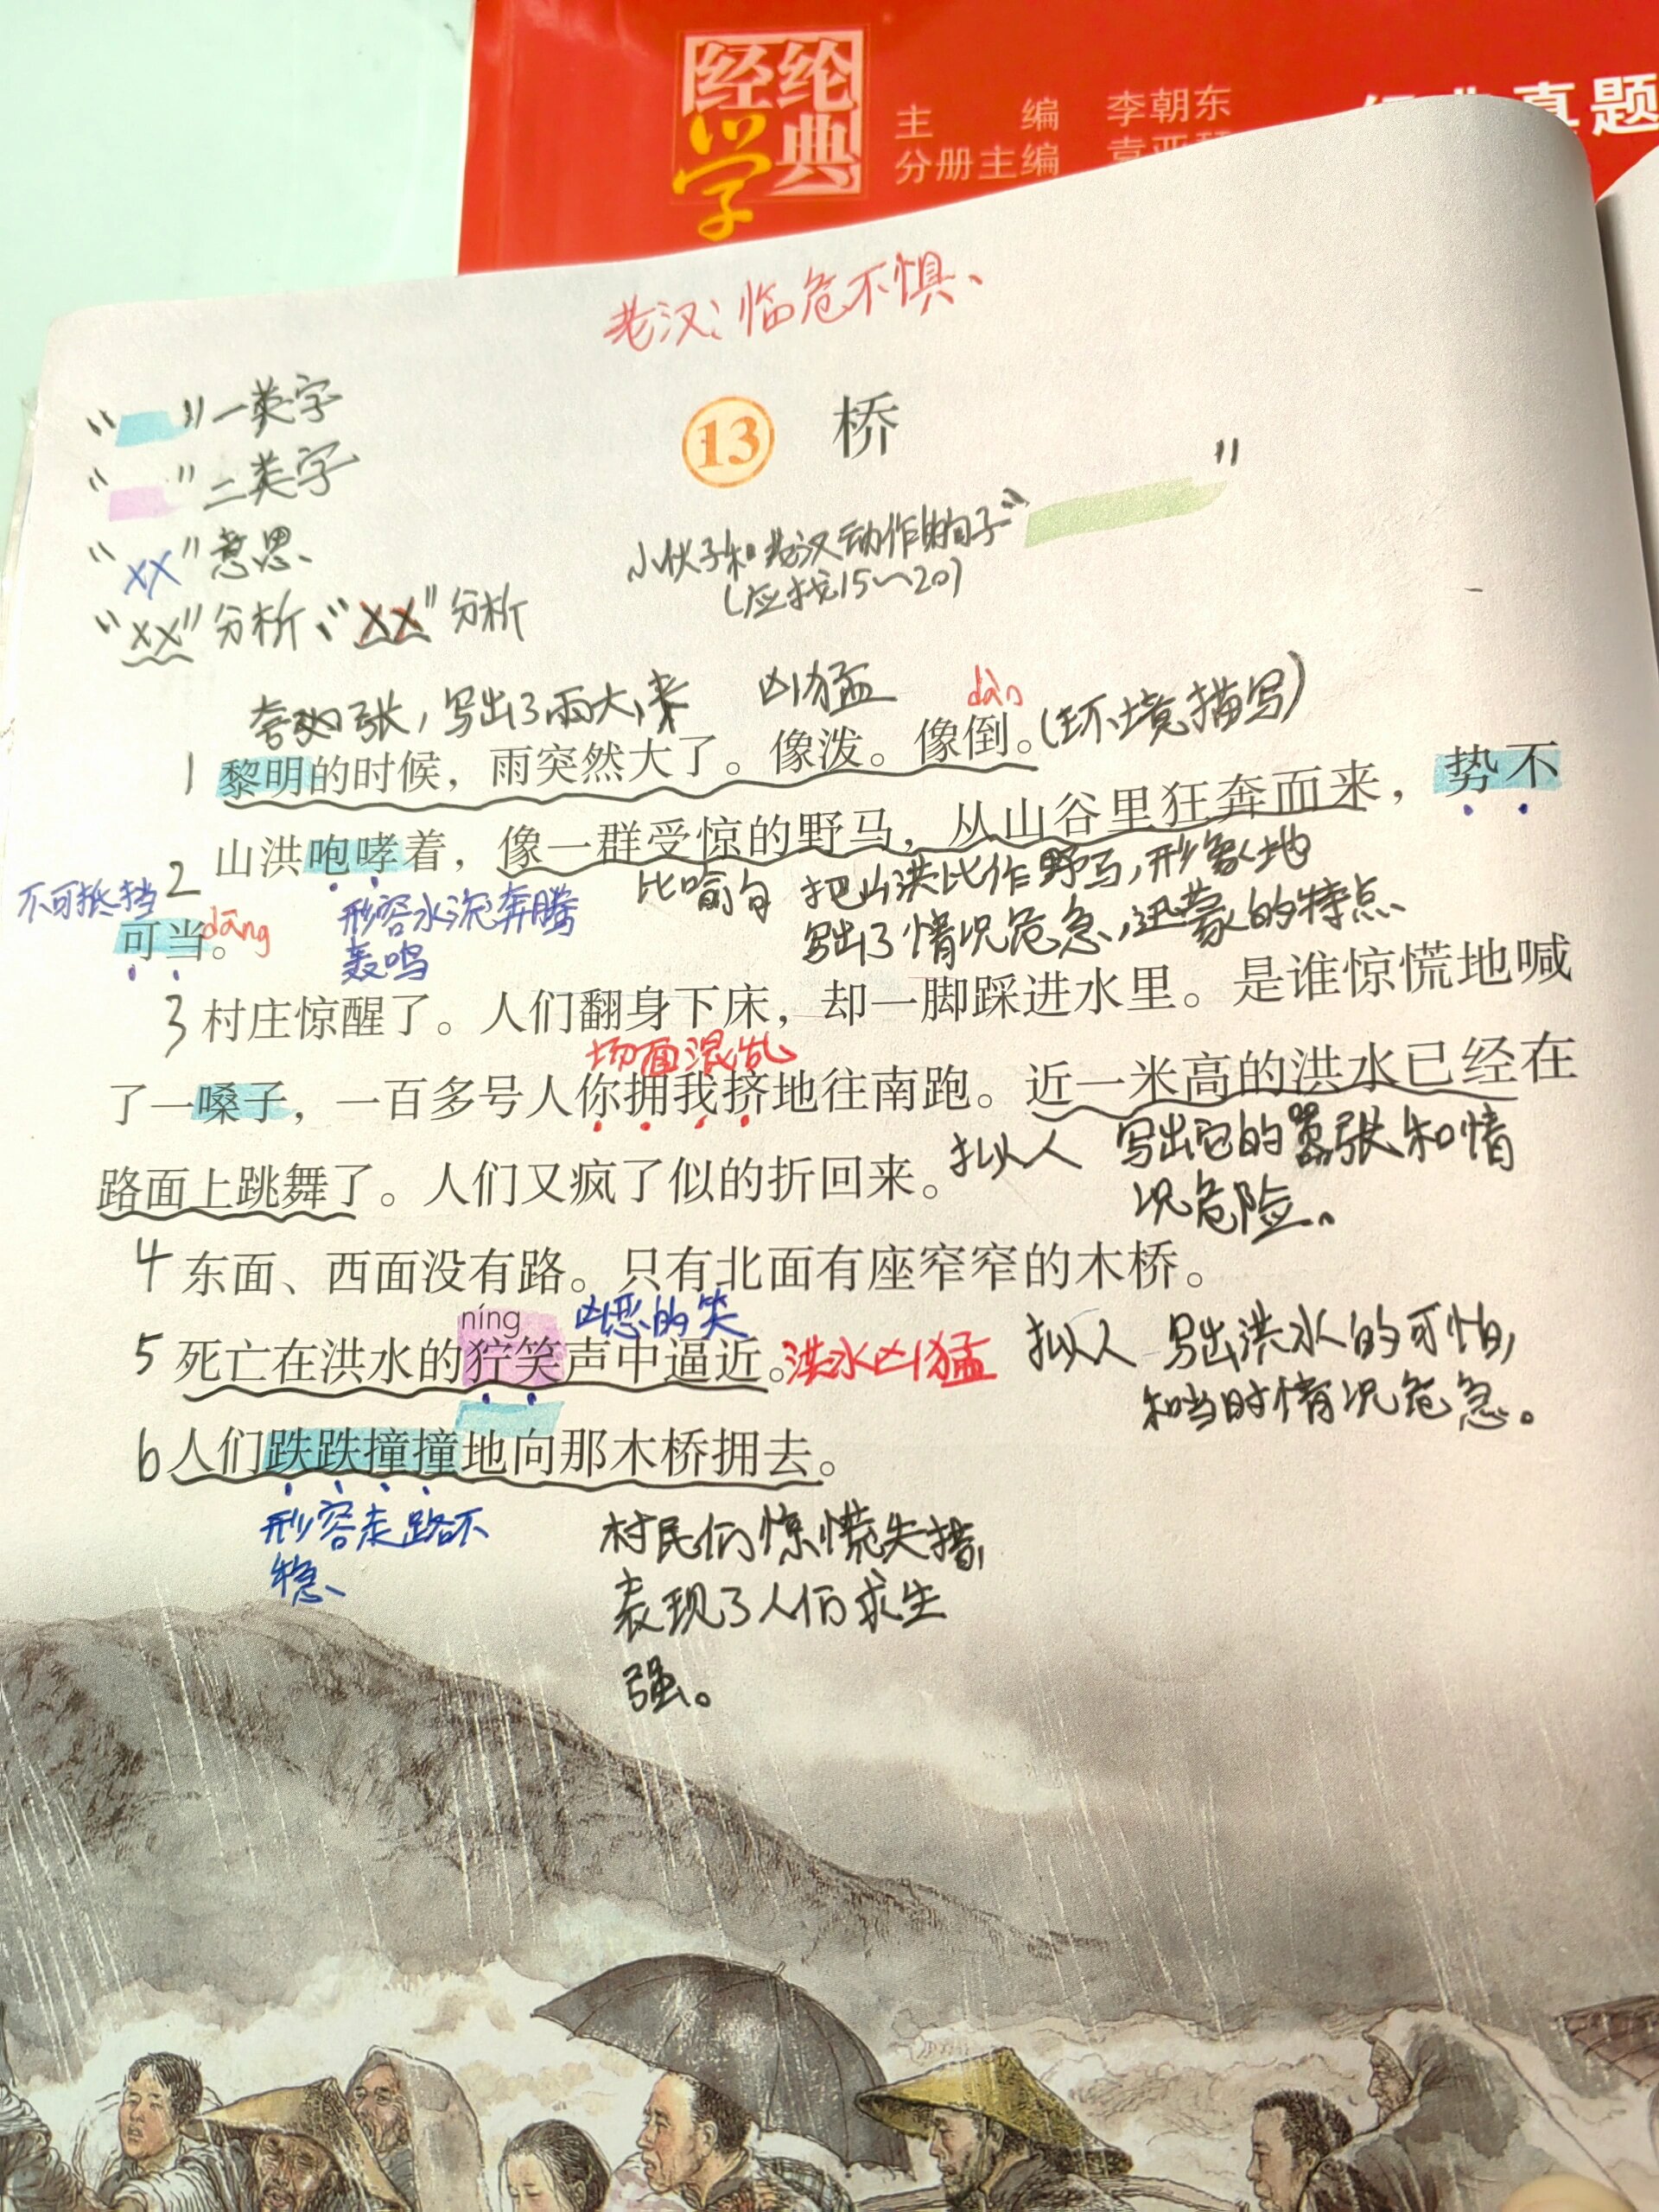 经纶
学典
主 编 李朝东
分册主编
真题
老汉：临危不惧、
“ ”一类字
13 桥
“ ”二类字
“xx”意思、
小伙子和老汉动作的句子“ ”
（应找15~20）
“xx”分析、“xx”分析
夸张，写出了雨大，来 凶猛 dào
1 黎明的时候，雨突然大了。像泼。像倒。（环境描写）
2 山洪咆哮着，像一群受惊的野马，从山谷里狂奔而来，势不
不可抵挡 形容水流奔腾 比喻句 把山洪比作野马，形象地
可当。dāng 轰鸣 写出了情况危急，迅蒙的特点、
3 村庄惊醒了。人们翻身下床，却一脚踩进水里。是谁惊慌地喊
场面混乱
了一嗓子，一百多号人你拥我挤地往南跑。近一米高的洪水已经在
拟人 写出它的嚣张和情
路面上跳舞了。人们又疯了似的折回来。
况危险。
4 东面、西面没有路。只有北面有座窄窄的木桥。
níng 凶恶的笑
5 死亡在洪水的狞笑声中逼近。洪水凶猛 拟人 写出洪水的可怕，
和当时情况危急。
6 人们跌跌撞撞地向那木桥拥去。
形容走路不 村民们惊慌失措，
稳、 表现了人们求生
强。